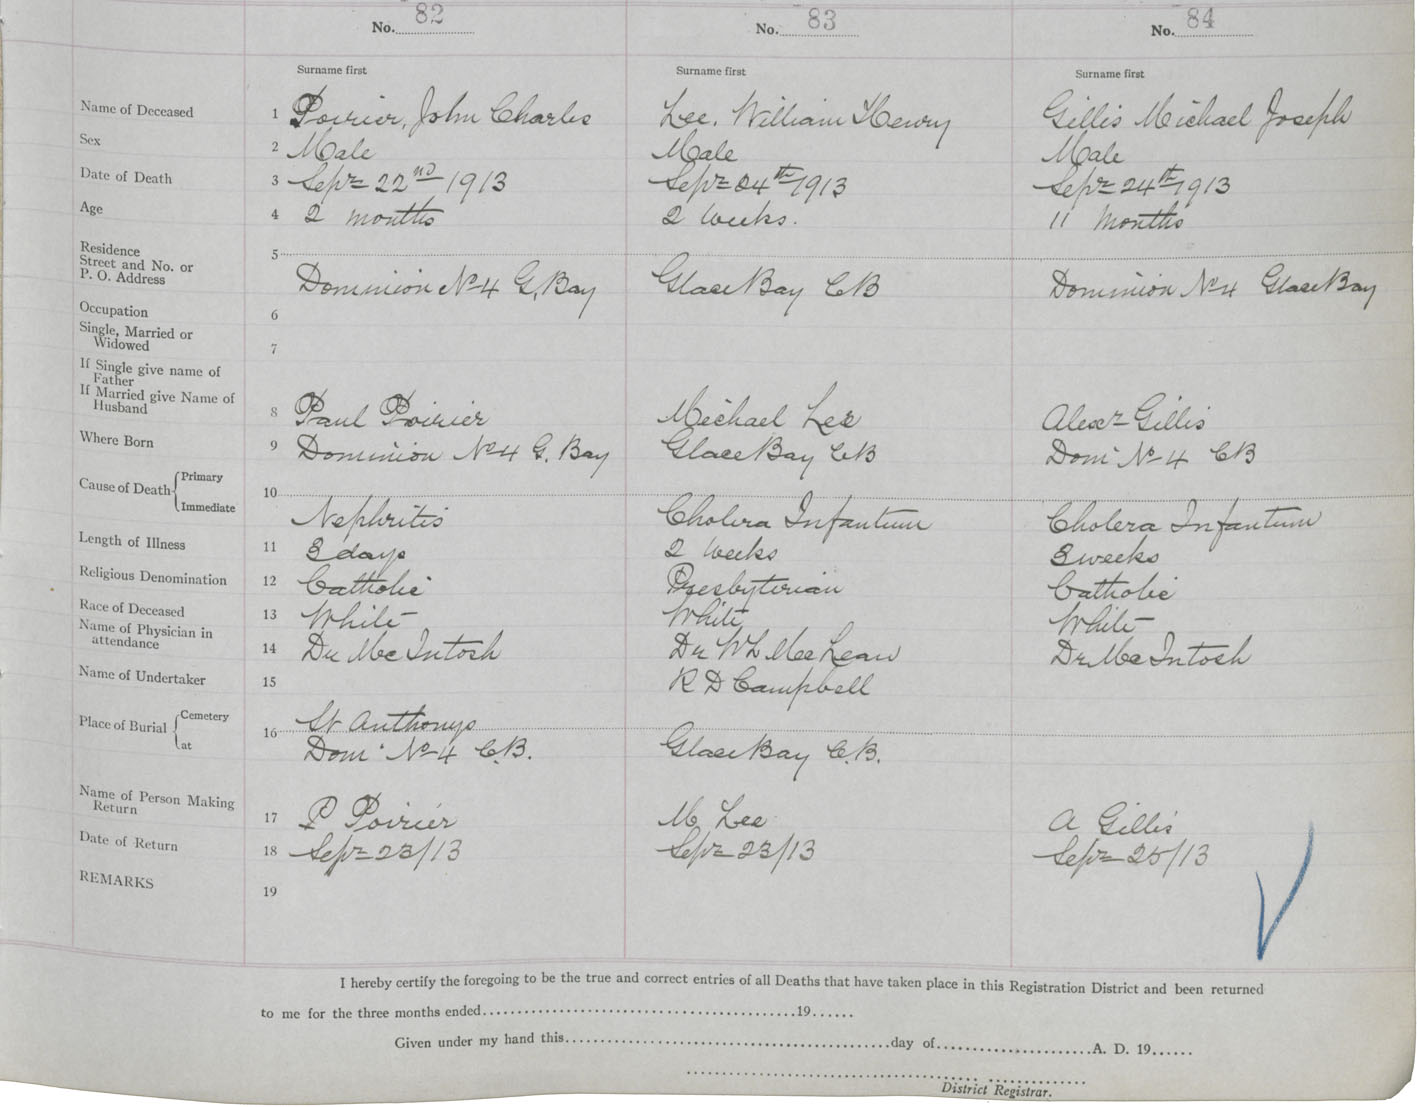 No. 82 No. 83 No. 84
Surname first Surname first Surname first
Name of Deceased 1 Poirier, John Charles Lee, William Henry Gillis Michael Joseph
Sex 2 Male Male Male
Date of Death 3 Sept 22nd 1913 Sept 24th 1913 Sept 24th 1913
Age 4 2 months 2 weeks. 11 Months
Residence 5
Street and No. or
P. O. Address Dominion No 4 G. Bay Glace Bay CB Dominion No 4 Glace Bay
Occupation 6
Single, Married or
Widowed 7
If Single give name of
Father
If Married give Name of
Husband 8 Paul Poirier Michael Lee Alexr Gillis
Where Born 9 Dominion No 4 G. Bay Glace Bay CB Dom No 4 CB
Cause of Death Primary 10
Immediate Nephritis Cholera Infantum Cholera Infantum
Length of Illness 11 3 days 2 weeks 3 weeks
Religious Denomination 12 Catholic Presbyterian Catholic
Race of Deceased 13 White White White
Name of Physician in
attendance 14 Dr McIntosh Dr W L MacLean Dr McIntosh
Name of Undertaker 15 R D Campbell
Place of Burial Cemetery 16 St Anthonys
at Dom No 4 C.B. Glace Bay C.B.
Name of Person Making
Return 17 P Poirier M Lee A Gillis
Date of Return 18 Sept 23/13 Sept 23/13 Sept 25/13
REMARKS 19
I hereby certify the foregoing to be the true and correct entries of all Deaths that have taken place in this Registration District and been returned
to me for the three months ended..........19......
Given under my hand this..........day of..........A. D. 19......
District Registrar.